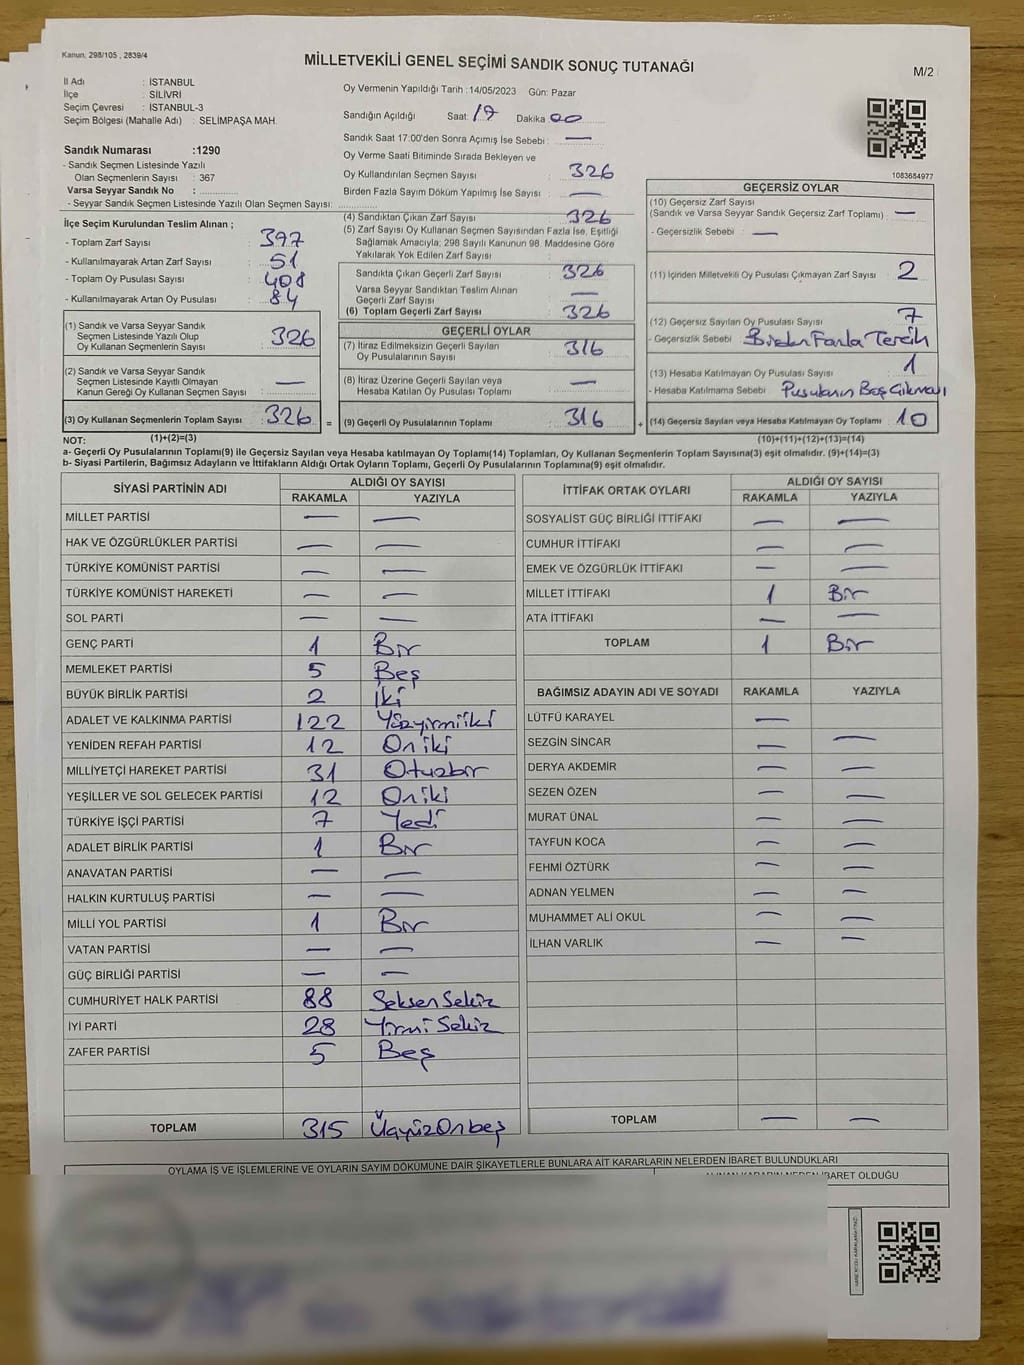 Kanun, 298/105 , 2839/4
MİLLETVEKİLİ GENEL SEÇİMİ SANDIK SONUÇ TUTANAĞI
M/2
İl Adı : İSTANBUL
İlçe : SİLİVRİ
Seçim Çevresi : İSTANBUL-3
Seçim Bölgesi (Mahalle Adı) : SELİMPAŞA MAH.
Sandık Numarası :1290
- Sandık Seçmen Listesinde Yazılı
Olan Seçmenlerin Sayısı : 367
Varsa Seyyar Sandık No :
- Seyyar Sandık Seçmen Listesinde Yazılı Olan Seçmen Sayısı:
Oy Vermenin Yapıldığı Tarih :14/05/2023 Gün: Pazar
Sandığın Açıldığı Saat: 17 Dakika 00
Sandık Saat 17:00'den Sonra Açımış İse Sebebi : —
Oy Verme Saati Bitiminde Sırada Bekleyen ve
Oy Kullandırılan Seçmen Sayısı 326
Birden Fazla Sayım Döküm Yapılmış İse Sayısı : —
1083684977
İlçe Seçim Kurulundan Teslim Alınan ;
- Toplam Zarf Sayısı : 397
- Kullanılmayarak Artan Zarf Sayısı : 51
- Toplam Oy Pusulası Sayısı : 408
- Kullanılmayarak Artan Oy Pusulası : 84
(1) Sandık ve Varsa Seyyar Sandık
Seçmen Listesinde Yazılı Olup
Oy Kullanan Seçmenlerin Sayısı : 326
(2) Sandık ve Varsa Seyyar Sandık
Seçmen Listesinde Kayıtlı Olmayan
Kanun Gereği Oy Kullanan Seçmen Sayısı : —
(3) Oy Kullanan Seçmenlerin Toplam Sayısı : 326 =
(4) Sandıktan Çıkan Zarf Sayısı : 326
(5) Zarf Sayısı Oy Kullanan Seçmen Sayısından Fazla İse, Eşitliği
Sağlamak Amacıyla, 298 Sayılı Kanunun 98. Maddesine Göre
Yakılarak Yok Edilen Zarf Sayısı :
Sandıkta Çıkan Geçerli Zarf Sayısı : 326
Varsa Seyyar Sandıktan Teslim Alınan
Geçerli Zarf Sayısı : —
(6) Toplam Geçerli Zarf Sayısı : 326
GEÇERLİ OYLAR
(7) İtiraz Edilmeksizin Geçerli Sayılan
Oy Pusulalarının Sayısı : 316
(8) İtiraz Üzerine Geçerli Sayılan veya
Hesaba Katılan Oy Pusulası Toplamı : —
(9) Geçerli Oy Pusulalarının Toplamı : 316 +
GEÇERSİZ OYLAR
(10) Geçersiz Zarf Sayısı
(Sandık ve Varsa Seyyar Sandık Geçersiz Zarf Toplamı) : —
- Geçersizlik Sebebi : —
(11) İçinden Milletvekili Oy Pusulası Çıkmayan Zarf Sayısı : 2
(12) Geçersiz Sayılan Oy Pusulası Sayısı : 7
- Geçersizlik Sebebi Birden Fazla Tercih
(13) Hesaba Katılmayan Oy Pusulası Sayısı : 1
- Hesaba Katılmama Sebebi : Pusulanın Boş Çıkması
(14) Geçersiz Sayılan veya Hesaba Katılmayan Oy Toplamı : 10
NOT: (1)+(2)=(3) (10)+(11)+(12)+(13)=(14)
a- Geçerli Oy Pusulalarının Toplamı(9) ile Geçersiz Sayılan veya Hesaba katılmayan Oy Toplamı(14) Toplamları, Oy Kullanan Seçmenlerin Toplam Sayısına(3) eşit olmalıdır. (9)+(14)=(3)
b- Siyasi Partilerin, Bağımsız Adayların ve İttifakların Aldığı Ortak Oyların Toplamı, Geçerli Oy Pusulalarının Toplamına(9) eşit olmalıdır.
SİYASİ PARTİNİN ADI ALDIĞI OY SAYISI
RAKAMLA YAZIYLA
MİLLET PARTİSİ — —
HAK VE ÖZGÜRLÜKLER PARTİSİ — —
TÜRKİYE KOMÜNİST PARTİSİ — —
TÜRKİYE KOMÜNİST HAREKETİ — —
SOL PARTİ — —
GENÇ PARTİ 1 Bir
MEMLEKET PARTİSİ 5 Beş
BÜYÜK BİRLİK PARTİSİ 2 İki
ADALET VE KALKINMA PARTİSİ 122 Yüzyirmiiki
YENİDEN REFAH PARTİSİ 12 Oniki
MİLLİYETÇİ HAREKET PARTİSİ 31 Otuzbir
YEŞİLLER VE SOL GELECEK PARTİSİ 12 Oniki
TÜRKİYE İŞÇİ PARTİSİ 7 Yedi
ADALET BİRLİK PARTİSİ 1 Bir
ANAVATAN PARTİSİ — —
HALKIN KURTULUŞ PARTİSİ — —
MİLLİ YOL PARTİSİ 1 Bir
VATAN PARTİSİ — —
GÜÇ BİRLİĞİ PARTİSİ — —
CUMHURİYET HALK PARTİSİ 88 Seksen Sekiz
İYİ PARTİ 28 Yirmi Sekiz
ZAFER PARTİSİ 5 Beş
TOPLAM 315 Üçyüzonbeş
İTTİFAK ORTAK OYLARI ALDIĞI OY SAYISI
RAKAMLA YAZIYLA
SOSYALİST GÜÇ BİRLİĞİ İTTİFAKI — —
CUMHUR İTTİFAKI — —
EMEK VE ÖZGÜRLÜK İTTİFAKI — —
MİLLET İTTİFAKI 1 Bir
ATA İTTİFAKI — —
TOPLAM 1 Bir
BAĞIMSIZ ADAYIN ADI VE SOYADI RAKAMLA YAZIYLA
LÜTFÜ KARAYEL —
SEZGİN SİNCAR — —
DERYA AKDEMİR — —
SEZEN ÖZEN — —
MURAT ÜNAL — —
TAYFUN KOCA — —
FEHMİ ÖZTÜRK — —
ADNAN YELMEN — —
MUHAMMET ALİ OKUL — —
İLHAN VARLIK — —
TOPLAM — —
OYLAMA İŞ VE İŞLEMLERİNE VE OYLARIN SAYIM DÖKÜMÜNE DAİR ŞİKAYETLERLE BUNLARA AİT KARARLARIN NELERDEN İBARET BULUNDUKLARI
ALINAN KARARIN NEDEN İBARET OLDUĞU